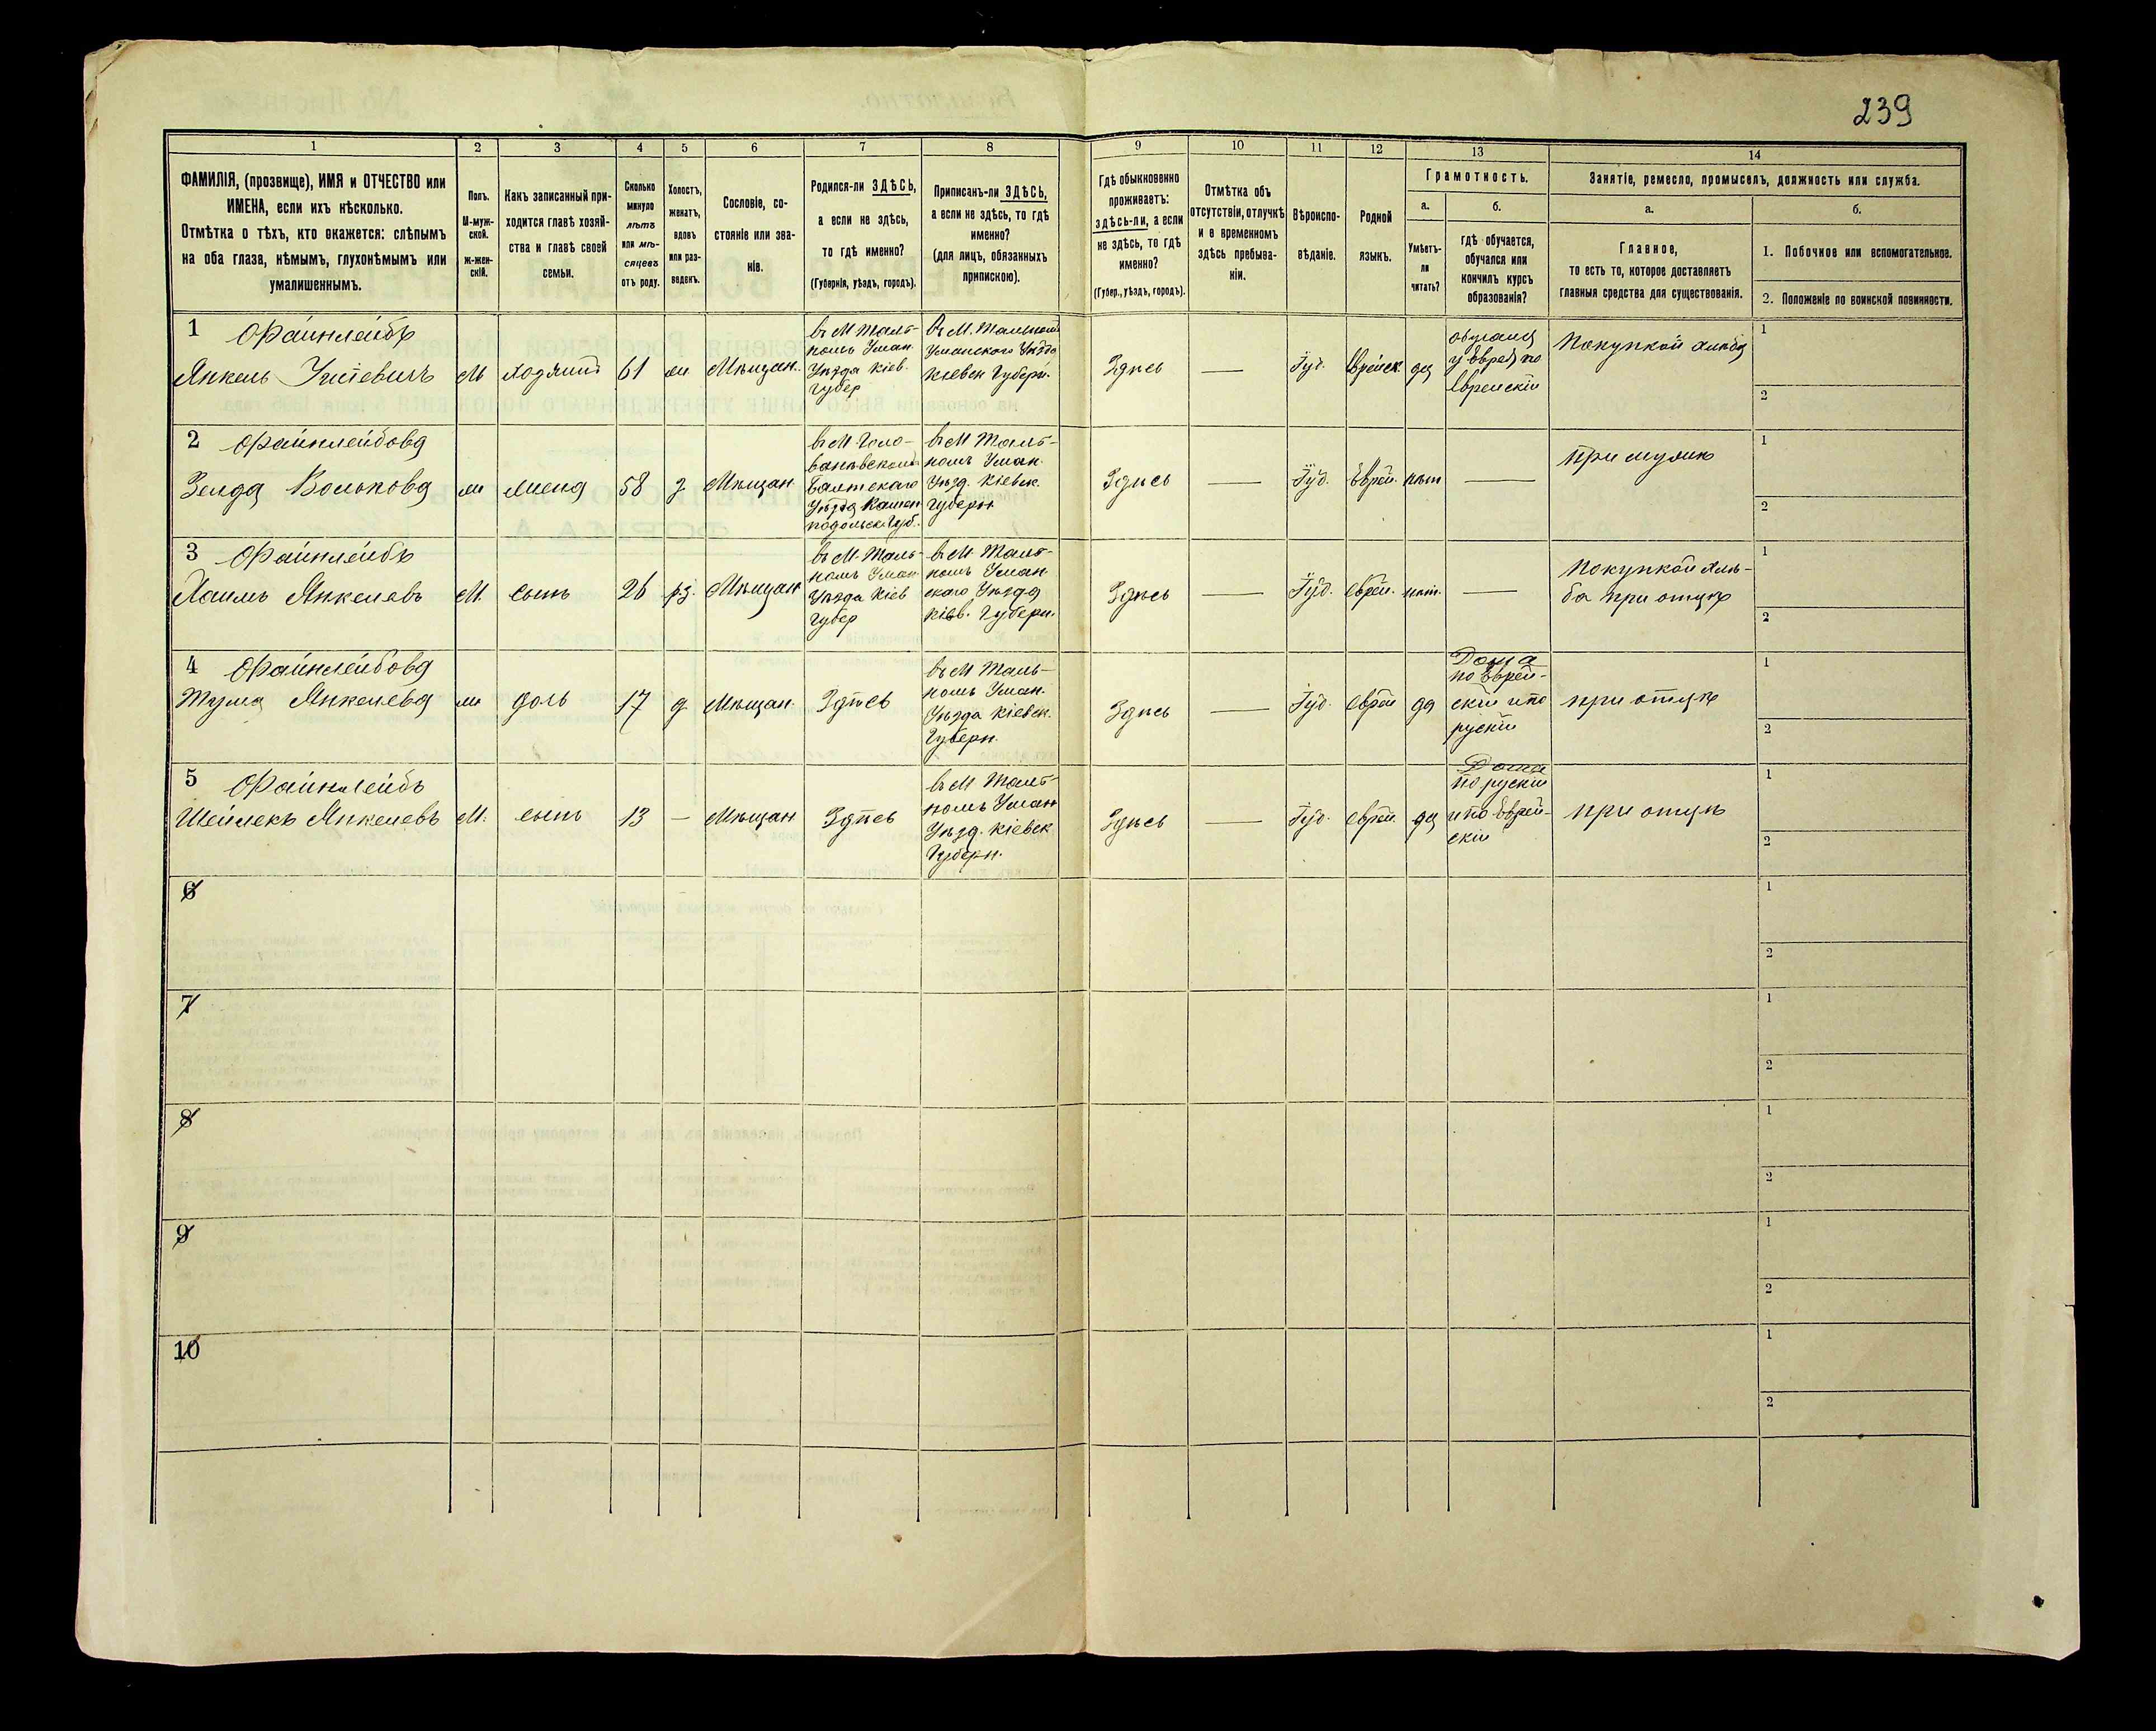 239
1
2
3
4
5
6
7
8
9
10
11
12
13
14
ФАМИЛІЯ, (прозвище), ИМЯ и ОТЧЕСТВО или
ИМЕНА, если ихъ нѣсколько.
Отмѣтка о тѣхъ, кто окажется: слѣпымъ
на оба глаза, нѣмымъ, глухонѣмымъ или
умалишеннымъ.
Полъ.
М-муж-
ской.
ж-жен-
скій.
Какъ записанный при-
ходится главѣ хозяй-
ства и главѣ своей
семьи.
Сколько
минуло
лѣтъ
или мѣ-
сяцевъ
отъ роду.
Холостъ,
женатъ,
вдовъ
или раз-
веденъ.
Сословіе, со-
стояніе или зва-
ніе.
Родился-ли ЗДѢСЬ,
а если не здѣсь,
то гдѣ именно?
(Губернія, уѣздъ, городъ).
Приписанъ-ли ЗДѢСЬ,
а если не здѣсь, то гдѣ
именно?
(для лицъ, обязанныхъ
припискою).
Гдѣ обыкновенно
проживаетъ:
здѣсь-ли, а если
не здѣсь, то гдѣ
именно?
(Губер., уѣздъ, городъ).
Отмѣтка объ
отсутствіи, отлучкѣ
и о временномъ
здѣсь пребыва-
ніи.
Вѣроиспо-
вѣданіе.
Родной
языкъ.
Грамотность.
а.
Умѣетъ-
ли
читать?
б.
гдѣ обучается,
обучался или
кончилъ курсъ
образованія?
Занятіе, ремесло, промыселъ, должность или служба.
а.
Главное,
то есть то, которое доставляетъ
главныя средства для существованія.
б.
1. Побочное или вспомогательное.
2. Положеніе по воинской повинности.
1
Файнлейбъ
Янкель
М
61
Мѣщан.
въ М Таль-
номъ Уман.
Уѣзда Кіев.
Губер
въ М. Тальномъ
Уманского Уѣзда
Кіевск Губерн.
Здѣсь
—
Іуд.
Еврейск.
да
обучался
у Еврея по
Еврейскіи
Покупкой хлѣба
1
2
2
Файнлейбова
Зелда Волькова
ж
жена
58
З
Мѣщан
въ М Голо-
Балтскаго
Уѣзда Камен
подольск Губ.
въ М Таль-
номъ Уман.
Уѣзд. Кіевск.
Губерн
Здѣсь
—
Іуд.
Еврей.
нѣт
—
при мужѣ
1
2
3
Файнлейбъ
Хаимъ Янкелевъ
М.
сынъ
26
рз.
Мѣщан
въ М. Таль-
номъ Уман.
Уѣзда Кіев
Губер
въ М Таль-
номъ Уман-
ского Уѣзда
Кіев. Губерн.
Здѣсь
—
Іуд.
еврей.
нѣт.
—
Покупкой хлѣ-
ба при отцѣ
1
2
4
Файнлейбова
Янкелева
ж
дочь
17
д
Мѣщан.
Здѣсь
въ М Таль-
номъ Уман.
Уѣзда Кіевск.
Губерн.
Здѣсь
—
Іуд.
еврей
да
Дома
по Еврей-
скіи и по
рускіи
при отцѣ
1
2
5
Файнлейбъ
Янкелевъ
М.
сынъ
13
—
Мѣщан
Здѣсь
въ М Таль-
номъ Уман
Уѣзд. Кіевск
Губерн.
Здѣсь
—
Іуд.
еврей.
да
Дома
по рускіи
и по Еврей-
скіи
при отцѣ
1
2
6
1
2
7
1
2
8
1
2
9
1
2
10
1
2